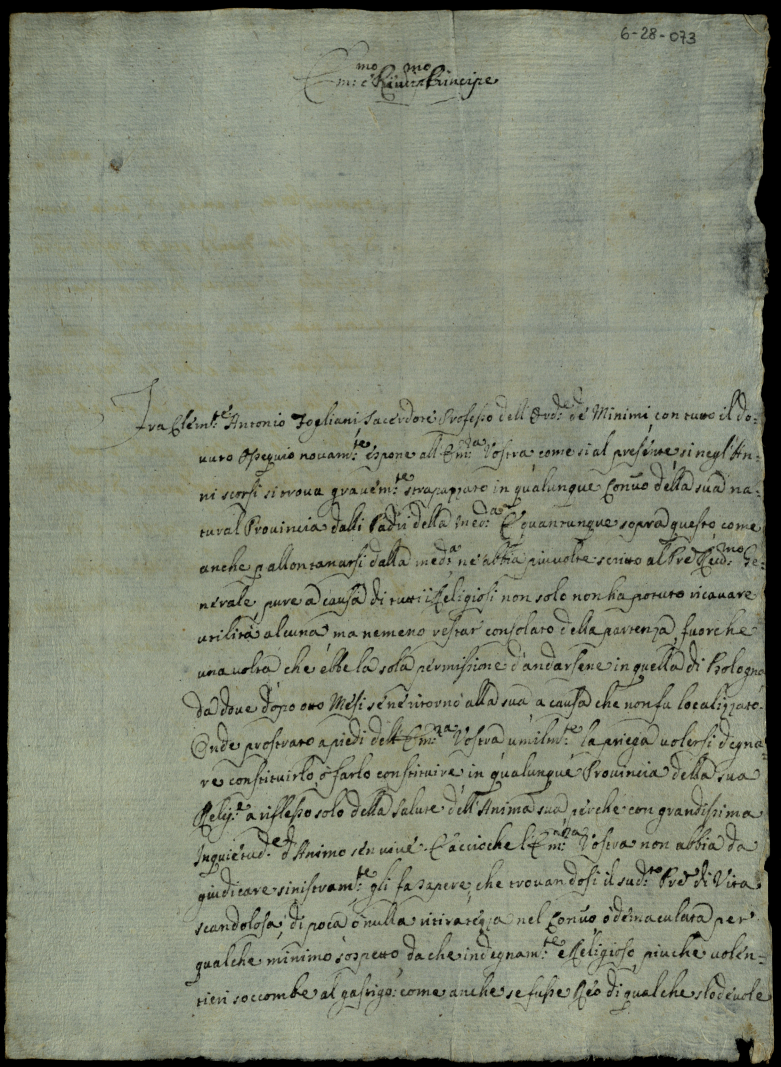 6-28-073
Em:mo e Reud:mo Principe
Fra Clem:te Antonio Fogliani Sacerdote Professo dell'Ord:e de Minimi con tutto il do-
vuto ossequio novam:te espone all'Em:za Vostra come si al presente si negl'An-
ni scorsi si trova gravem:te strapazzato in qualunque Conv:o della sua na-
tural Provincia dalli Padri della med:a E quantunque sopra questo come
anche p allontanarsi dalla med:a ne abbia piu volte scritto al Pre Reud:mo Ge-
nerale, pure a causa di tutti i Religiosi non solo non ha potuto ricavare
utilità alcuna ma nemeno restar consolato della partenza, fuorche
una volta che ebbe la sola permissione d'andarsene in quella di Bologna
da dove dopo otto Mesi se ne ritornò alla sua a causa che non fu localizzato.
Onde prostrato a piedi dell'Em:za Vostra umilm:te la priega volersi degna-
re constituirlo ò farlo constituire in qualunque Provincia della sua
Relig:e a riflesso solo della salute dell'Anima sua perche con grandissima
Inquietud:e d'Animo sen vive. E acciochè l'Em:nza Vostra non abbia da
giudicare sinistram:te gli fa sapere, che trovandosi il sud:to Pre di Vita
scandolosa, di poca ò nulla ritiratezza nel Conv:o ò demaculata per
qualche minimo sospetto da che indegnam:te e Religioso, piu che volen-
tieri soccombe al gastigo: come anche se fusse Reo di qualche slodevole